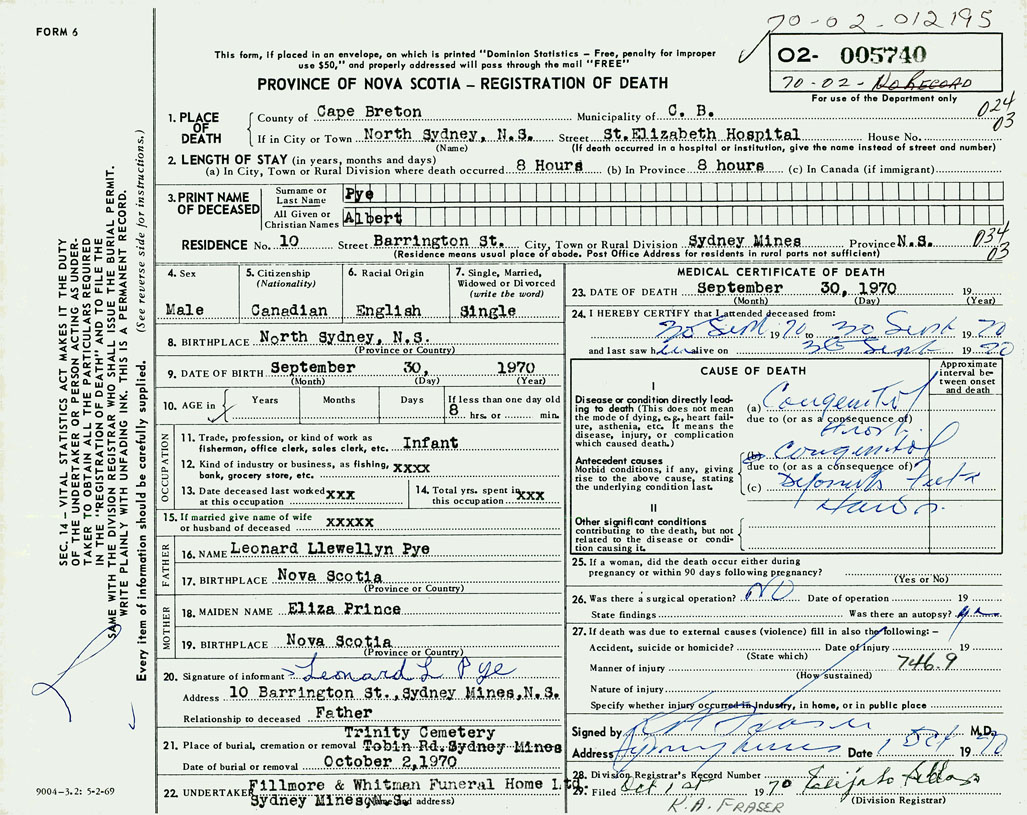 FORM 6
70-02-012195
This form, if placed in an envelope, on which is printed "Dominion Statistics – Free, penalty for improper
use $50," and properly addressed will pass through the mail "FREE"
02- 005740
70-02- No Record
For use of the Department only
PROVINCE OF NOVA SCOTIA – REGISTRATION OF DEATH
024
03
1. PLACE OF DEATH
County of Cape Breton Municipality of C. B.
If in City or Town North Sydney, N.S. Street St.Elizabeth Hospital House No.
(Name) (If death occurred in a hospital or institution, give the name instead of street and number)
2. LENGTH OF STAY (in years, months and days)
(a) In City, Town or Rural Division where death occurred 8 Hours (b) In Province 8 hours (c) In Canada (if immigrant)
3. PRINT NAME OF DECEASED
Surname or Last Name Pye
All Given or Christian Names Albert
RESIDENCE No. 10 Street Barrington St. City, Town or Rural Division Sydney Mines Province N.S.
034
03
(Residence means usual place of abode. Post Office Address for residents in rural parts not sufficient)
4. Sex
Male
5. Citizenship (Nationality)
Canadian
6. Racial Origin
English
7. Single, Married, Widowed or Divorced (write the word)
Single
8. BIRTHPLACE North Sydney, N.S.
(Province or Country)
9. DATE OF BIRTH September 30, 1970
(Month) (Day) (Year)
10. AGE in Years Months Days If less than one day old
8 hrs. or min.
OCCUPATION
11. Trade, profession, or kind of work as
fisherman, office clerk, sales clerk, etc. Infant
12. Kind of industry or business, as fishing,
bank, grocery store, etc. xxxx
13. Date deceased last worked
at this occupation xxx
14. Total yrs. spent in
this occupation xxx
15. If married give name of wife
or husband of deceased xxxxx
FATHER
16. NAME Leonard Llewellyn Pye
17. BIRTHPLACE Nova Scotia
(Province or Country)
MOTHER
18. MAIDEN NAME Eliza Prince
19. BIRTHPLACE Nova Scotia
(Province or Country)
20. Signature of informant Leonard L Pye
Address 10 Barrington St.,Sydney Mines,N.S.
Relationship to deceased Father
Trinity Cemetery
21. Place of burial, cremation or removal Tobin Rd.Sydney Mines
Date of burial or removal October 2,1970
22. UNDERTAKER Fillmore & Whitman Funeral Home Ltd.
Sydney Mines, N.S. (Name and address)
MEDICAL CERTIFICATE OF DEATH
23. DATE OF DEATH September 30, 1970 19
(Month) (Day) (Year)
24. I HEREBY CERTIFY that I attended deceased from:
30 Sept 1970 to 30 Sept 1970
and last saw him alive on 30 Sept 1970
CAUSE OF DEATH
Approximate interval between onset and death
I
Disease or condition directly leading
to death (This does not mean
the mode of dying, e.g., heart failure,
asthenia, etc. It means the
disease, injury, or complication
which caused death.)
(a) Congenital
due to (or as a consequence of)
Antecedent causes
Morbid conditions, if any, giving
rise to the above cause, stating
the underlying condition last.
(b) Congenital
due to (or as a consequence of)
(c)
II
Other significant conditions
contributing to the death, but not
related to the disease or condition
causing it.
25. If a woman, did the death occur either during
pregnancy or within 90 days following pregnancy?
(Yes or No)
26. Was there a surgical operation? NO Date of operation 19
State findings Was there an autopsy?
27. If death was due to external causes (violence) fill in also the following:–
Accident, suicide or homicide? Date of injury 19
(State which)
Manner of injury 746.9
(How sustained)
Nature of injury
Specify whether injury occurred in industry, in home, or in public place
Signed by K A Fraser M.D.
Address Sydney Mines Date 1 Oct 1970
28. Division Registrar's Record Number
29. Filed Oct 1st 1970
(Division Registrar)
K.A. FRASER
SEC. 14 – VITAL STATISTICS ACT MAKES IT THE DUTY
OF THE UNDERTAKER OR PERSON ACTING AS UNDERTAKER
TO OBTAIN ALL THE PARTICULARS REQUIRED
IN THE "REGISTRATION OF DEATH" AND TO FILE THE
SAME WITH THE DIVISION REGISTRAR WHO SHALL ISSUE THE BURIAL PERMIT.
WRITE PLAINLY WITH UNFADING INK. THIS IS A PERMANENT RECORD.
Every item of information should be carefully supplied. (See reverse side for instructions.)
9004–3.2: 5-2-69